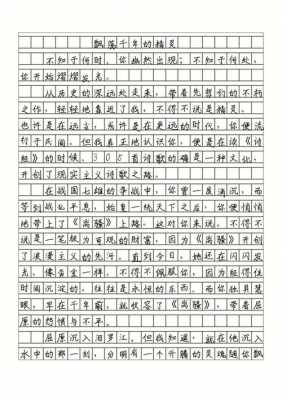 飘荡千年的精灵
不知于何时，你幽然出现；不知于何处，
你开始熠熠发光。
从历史的深远处走来，带着先哲们的不朽
之作，轻轻地靠近了我，不得不说是精灵。
也许是在远古，或许是在更远的时代，你便流
行于民间。但我真正地认识你，便是在读《诗
经》的时候。305首诗歌的确是一种文化，
开创了现实主义诗歌之路。
在战国七雄的争战中，你曾一度消沉，而
等到战乱平息，始皇一统天下之后，你便悄悄
地带上了《离骚》上路。这对你来说，不得不
说是一笔极为可观的财富，因为《离骚》开创
了浪漫主义的先河。直到今日，她还在闪闪发
光，像黄金一样，不得不佩服你，因为经得住
时间沉淀的，往往是永恒的东西。而你独具慧
眼，早在千年前，就收容了《离骚》，带着屈
原的愁愤与不平。
屈原沉入汨罗江。但我知道，就在他沉入
水中的那一刻，分明有一个开朗的灵魂随你飘